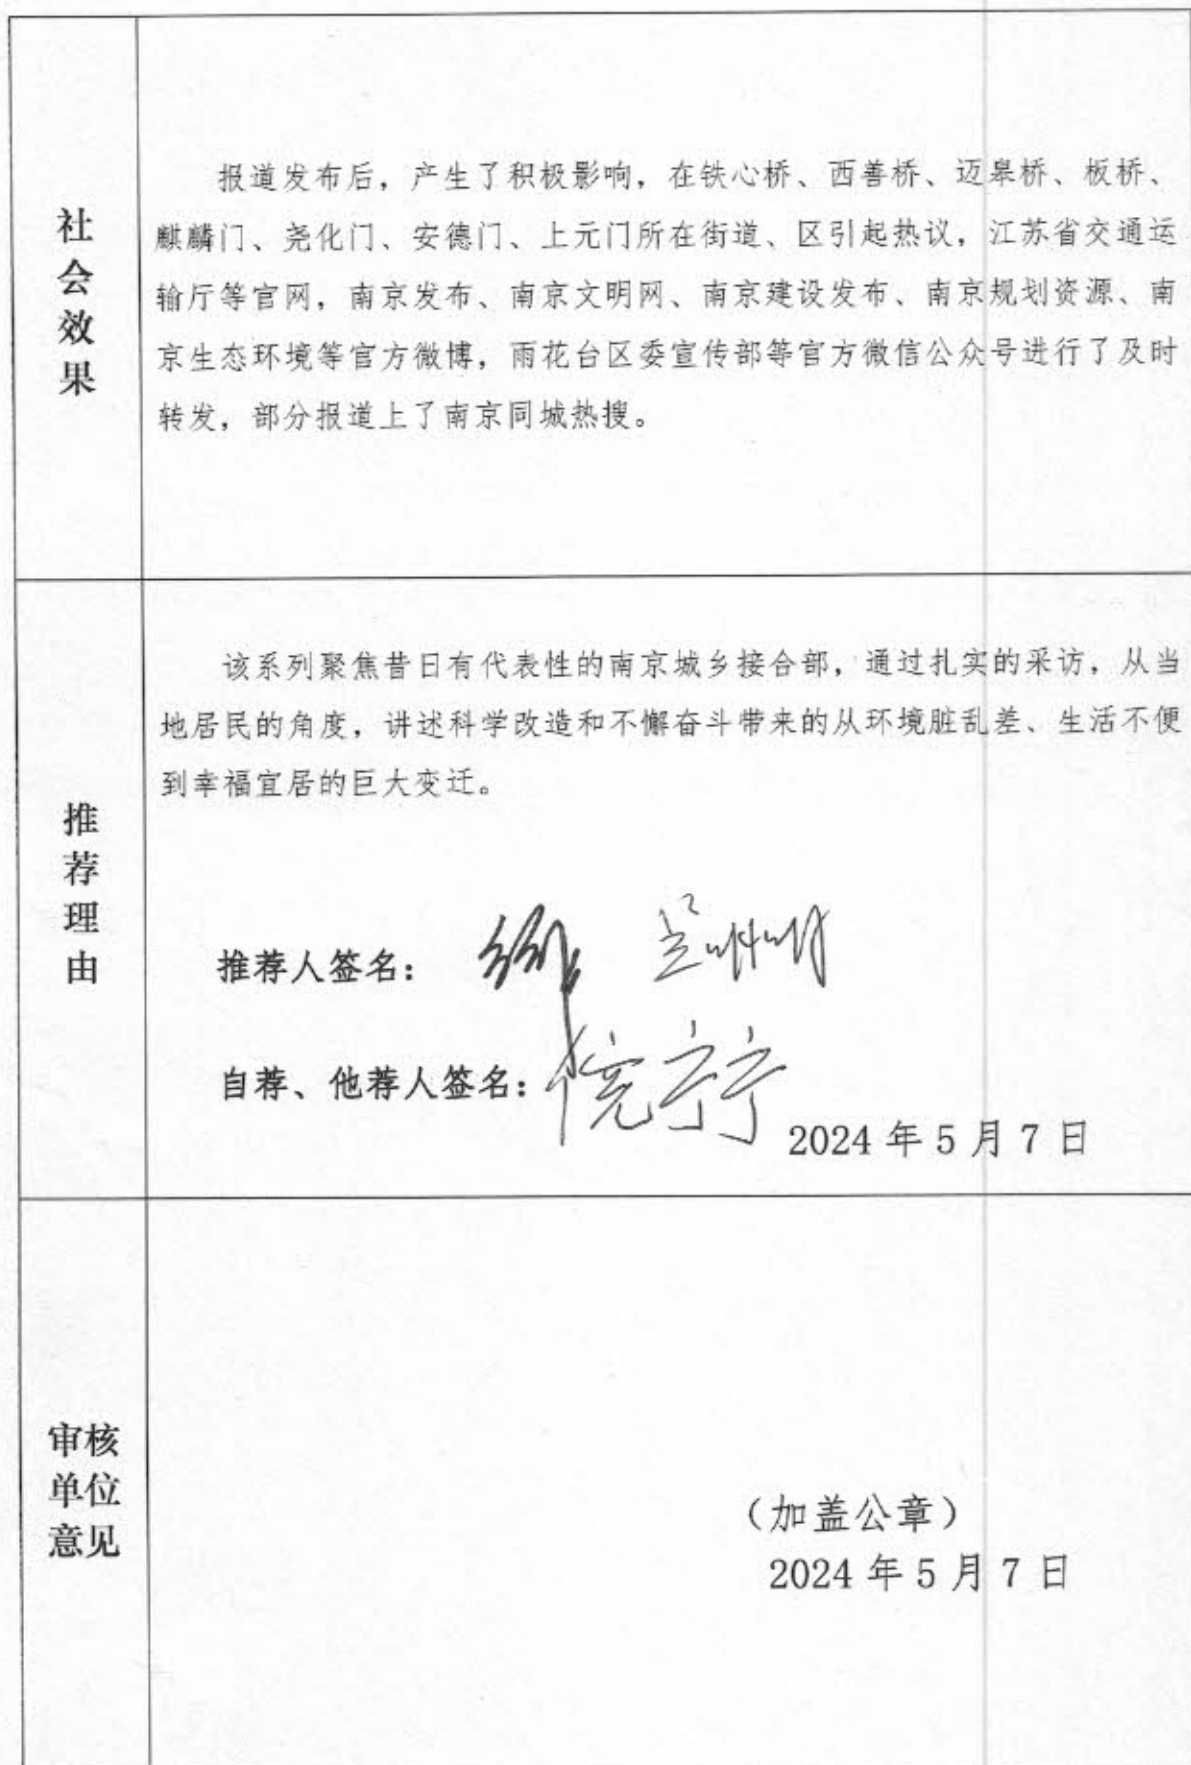 社会效果
报道发布后，产生了积极影响，在铁心桥、西善桥、迈皋桥、板桥、
麒麟门、尧化门、安德门、上元门所在街道、区引起热议，江苏省交通运
输厅等官网，南京发布、南京文明网、南京建设发布、南京规划资源、南
京生态环境等官方微博，雨花台区委宣传部等官方微信公众号进行了及时
转发，部分报道上了南京同城热搜。
推荐理由
该系列聚焦昔日有代表性的南京城乡接合部，通过扎实的采访，从当
地居民的角度，讲述科学改造和不懈奋斗带来的从环境脏乱差、生活不便
到幸福宜居的巨大变迁。
推荐人签名：
自荐、他荐人签名：倪宁宁
2024年5月7日
审核
单位
意见
（加盖公章）
2024年5月7日